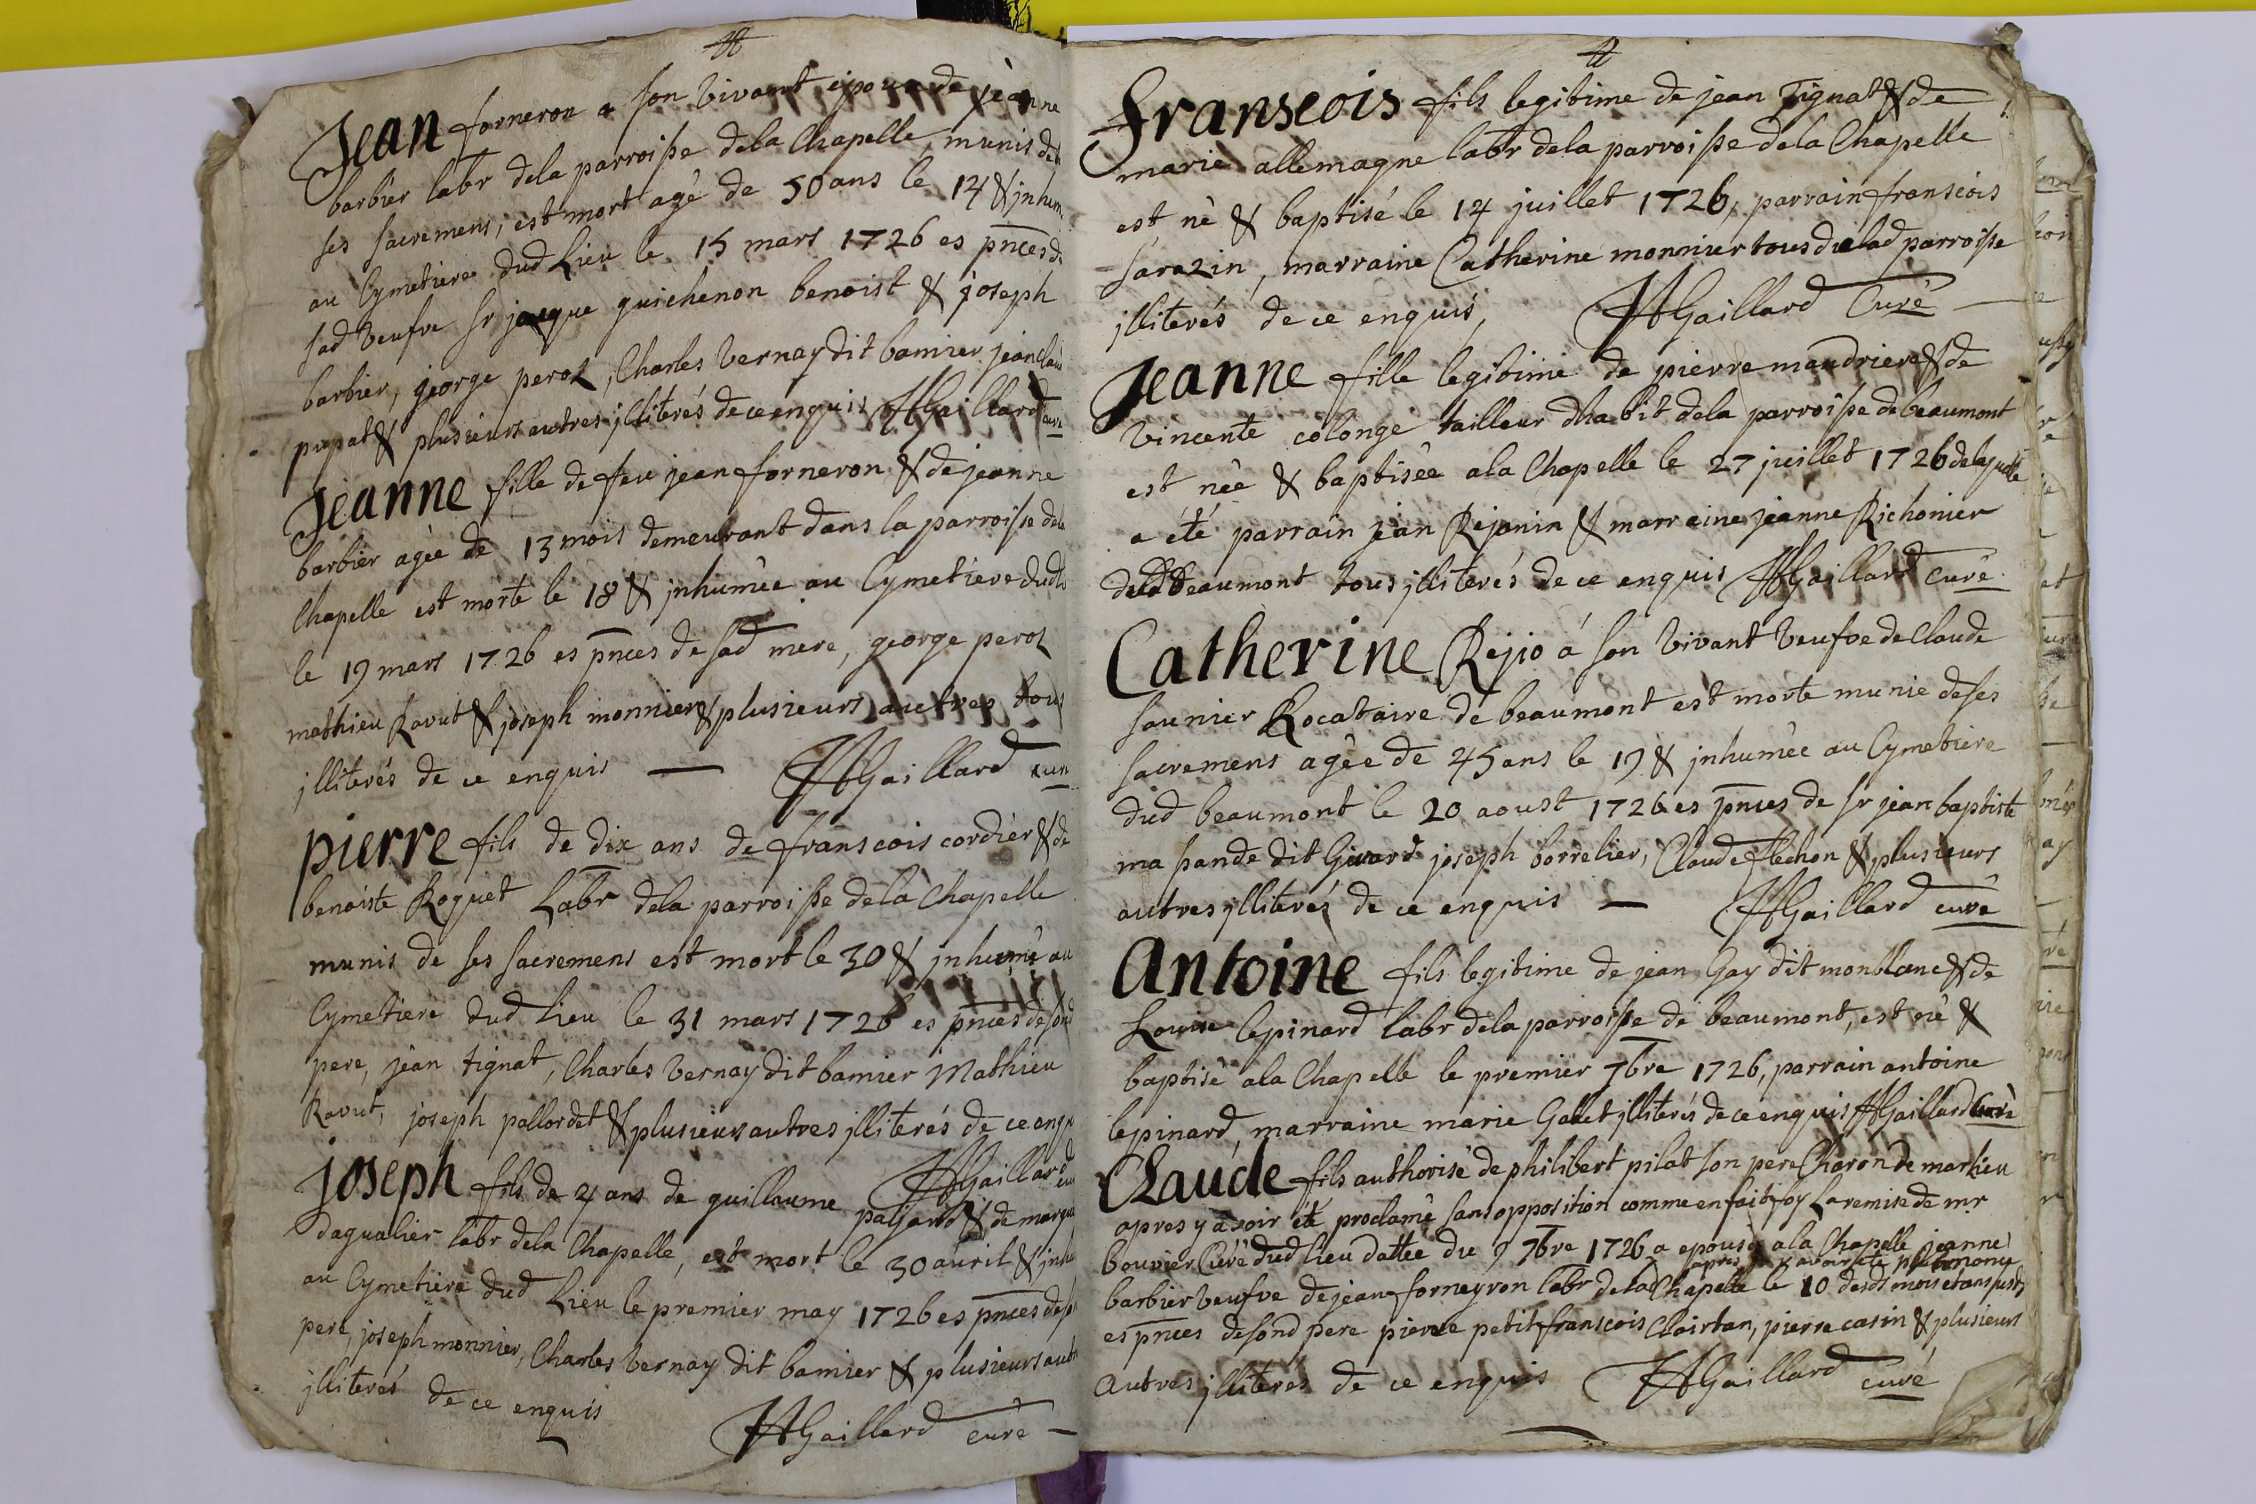 Jean forneron a son vivant epoux de jeanne
barbier labr dela parroisse dela Chapelle, munis de
ses sacremens, est mort agé de 50 ans le 14 & jnhum
au Cymetiere dud Lieu le 15 mars 1726 es pnces de
sad veufve sr jacque guichenon benoist & joseph
barbier, george peroz, Charles vernay dit bamier jean
pupat & plusieurs autres jlliterés de ce enquis AGaillard curé
Jeanne fille de feu jean forneron & de jeanne
barbier agée de 13 mois demeurant dans la parroisse dela
Chapelle est morte le 18 & jnhumée au Cymetiere dud
le 19 mars 1726 es pnces de sad mere, george peroz
mathieu Ravut & joseph monnier & plusieurs autres tous
jlliterés de ce enquis AGaillard cure
pierre fils de dix ans de franscois cordier & de
benoiste Roguet Labr dela parroisse dela Chapelle
munis de ses sacremens est mort le 30 & jnhumé au
Cymetiere dud Lieu le 31 mars 1726 es pnces de sond
pere, jean tignat, Charles vernay dit bamier Mathieu
Ravut, joseph pallordet & plusieurs autres jlliterés de ce enqu
AGaillard cu
joseph fils de 4 ans de guillaume paljard & de margue
dagualier labr dela Chapelle, est mort le 30 auril & jnhu
au Cymetiere dud Lieu le premier may 1726 es pnces de s
pere, joseph monnier, Charles vernay dit bamier & plusieurs autr
jlliterés de ce enquis
AGaillard curé
franscois fils legitime de jean Tignat & de
marie allemagne labr dela parroisse dela Chapelle
est né & baptisé le 14 juillet 1726, parrain franscois
sarazin, marraine Catherine monnier tous de lad parroisse
jlliterés de ce enquis, AGaillard Curé
Jeanne fille legitime de pierre mandriere & de
vincente colonge tailleur dhabit dela parroisse de beaumont
est née & baptisée a la Chapelle le 27 juillet 1726 de laquelle
a été parrain jean Rejanin & marraine jeanne Richonier
dud beaumont tous jlliterés de ce enquis AGaillard curé
Catherine Rejio á son vivant veufve de Claude
saunier Rocataire de beaumont est morte munie de ses
sacremens agée de 45 ans le 19 & jnhumée au Cymetiere
dud beaumont le 20 aoust 1726 es pnces de sr jean baptiste
ma sande dit Girard joseph borrelier, Claude flechon & plusieurs
autres jlliterés de ce enquis AGaillard curé
Antoine fils legitime de jean Gay dit monblanc & de
Louise lepinard labr dela parroisse de beaumont, est né &
baptisé a la Chapelle le premier 7bre 1726, parrain antoine
lepinard, marraine marie Galet jlliterés de ce enquis AGaillard Curé
Claude fils authorisé de philibert pilat son pere Charon de marlieu
apres y avoir eté proclamé sans opposition comme en fait foy La remise de mr
bouvier Curé dud lieu dattée du 9 7bre 1726 a epousé a la Chapelle jeanne
apres y avoir eté
barbier veufve de jean forneyron labr de lad Chapelle le 10 desds mois et an
es pnces de sond pere pierre petit franscois Clairtan, pierre casin & plusieurs
autres jlliterés de ce enquis AGaillard curé